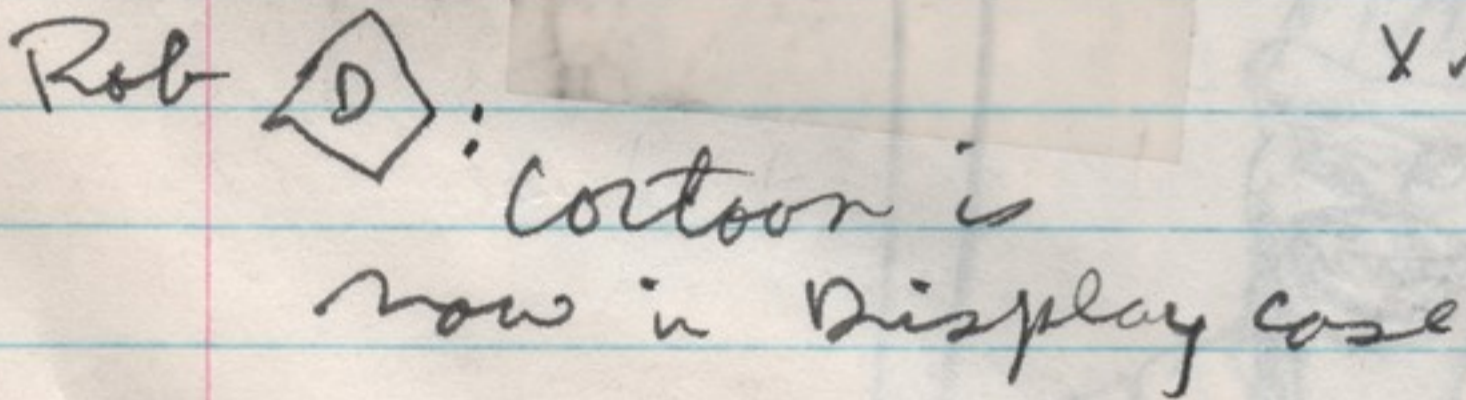 Rob D:
Cartoon is
now in Display case